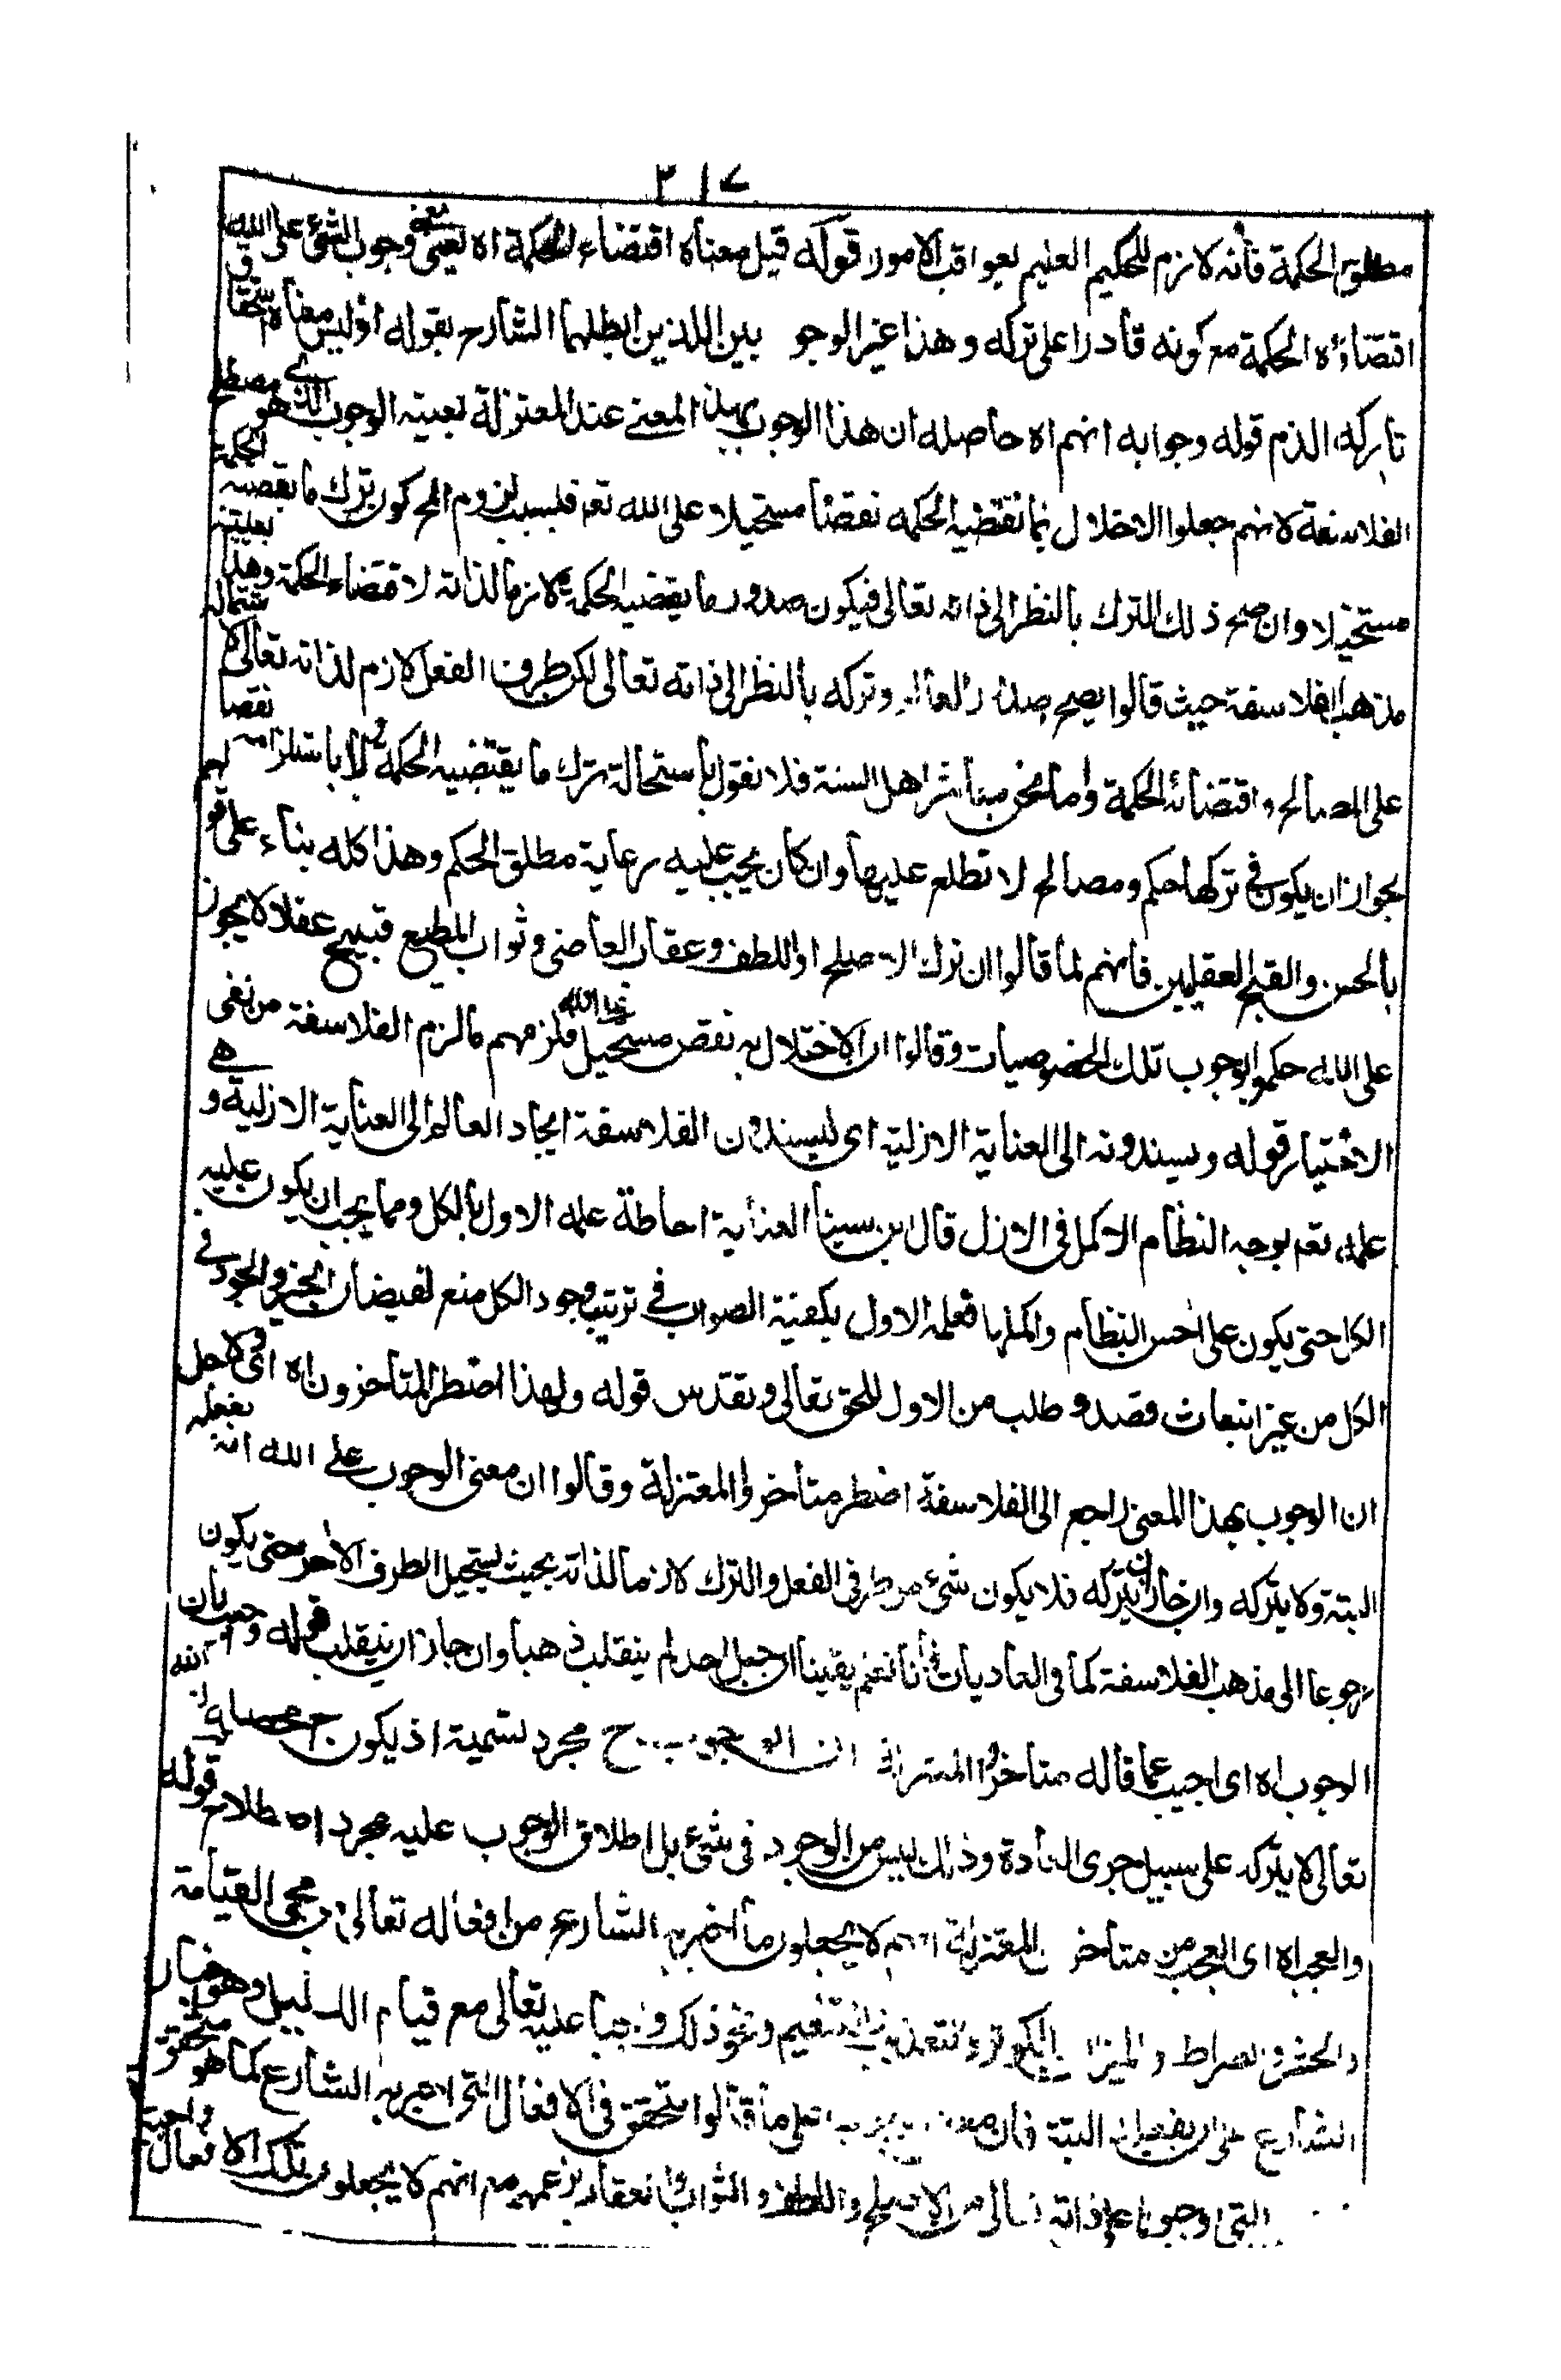 ٣١٧
مطلق الحكمة فانه لازم للحكيم العليم بعواقب الامور قوله قيل معناه اقتضاء الحكمة اه يعني معنى وجوب الشئ على الله
اقتضاؤه الحكمة مع كونه قادرا على تركه وهذا غير الوجو بين اللذين ابطلهما الشارح بقوله اذ ليس معناه استحقاق
تاركه الذم قوله وجوابه انهم اه حاصله ان هذا الوجوب بهذا المعنى عند المعتزلة بعينه الوجوب الذي هو مصطلح
الفلاسفة لانهم جعلوا الاخلال بما تقتضيه الحكمه نقصا مستحيلا على الله تعم فبسبب لزوم المح كون ترك ما يقتضيه الحكمة
مستحيلا وان صح ذلك الترك بالنظر الى ذاته تعالى فيكون صدور ما يقتضيه الحكمة لازما لذاته لاقتضاء الحكمة وهذا بعينه
مذهب الفلاسفة حيث قالوا يصح صدور العالم وتركه بالنظر الى ذاته تعالى لكن طرف الفعل لازم لذاته تعالى لاشتماله
على المصالح واقتضائه الحكمة واما نحن مباشر اهل السنة فلا نقول باستحالة ترك ما يقتضيه الحكمة لا باستلزامه نقصا
لجواز ان يكون في تركها حكم ومصالح لا نطلع عليها وان كان يجب عليه رعاية مطلق الحكم وهذا كله بناء على قولهم
بالحسن والقبح العقليين فانهم لما قالوا ان ترك الاصلح او اللطف وعقاب العاصى وثواب المطيع قبيح عقلا لا يجوز
على الله حكموا بوجوب تلك الخصوصيات وقالوا ان الاخلال به نقص مستحيل على الله فلزمهم ما لزم الفلاسفة من نفى
الاختيار قوله ويسندونه الى العناية الازلية اى يسندون الفلاسفة ايجاد العالم الى العناية الازلية وهي
علمه تعم بوجه النظام الاكمل فى الازل قال ابن سينا العناية احاطة علمه الاول بالكل ومما يجب ان يكون عليه
الكل حتى يكون على احسن النظام واكملها فعلمه الاول بكيفية الصواب في ترتيب وجود الكل منبع لفيضان الخير والجود في
الكل من غير انبعاث قصد و طلب من الاول للحق تعالى وتقدس قوله ولهذا اضطر المتأخرون اه اى لاجل
ان الوجوب بهذا المعنى راجع الى الفلاسفة اضطر متأخروا المعتزلة وقالوا ان معنى الوجوب على الله انه يفعله
البتة ولا يتركه وان جاز ان يتركه فلا يكون شئ من طرفى الفعل والترك لازما لذاته بحيث يستحيل الطرف الآخر حتى يكون
رجوعا الى مذهب الفلاسفة كما فى العاديات فانا نعلم يقينا ان جبل احد لم ينقلب ذهبا وان جاز ان ينقلب قوله واجيب بان
الوجوب اه اى اجيب عما قاله متأخروا المعتزلة ان الوجوب ح مجرد تسمية اذ يكون ح ان الله
تعالى لا يتركه على سبيل جرى العادة وذلك ليس من الوجوب فى شئ بل اطلاق الوجوب عليه مجرد اصطلاح قوله
والعجب اه اى العجب من متأخرى المعتزلة انهم لا يجعلون ما اخبر به الشارع من افعاله تعالى من مجئ القيامة
والحشر والصراط والميزان والتعذيب والتنعيم ونحو ذلك واجبا عليه تعالى مع قيام الدليل وهو اخبار
الشارع على ان يفعله البتة فان على ما قالوا متحقق فى الافعال التى اخبر به الشارع كما هو متحقق
التى اوجبوا على ذاته تعالى من الاصلح واللطف والثواب والعقاب بزعمهم مع انهم لا يجعلون تلك الافعال واجبة